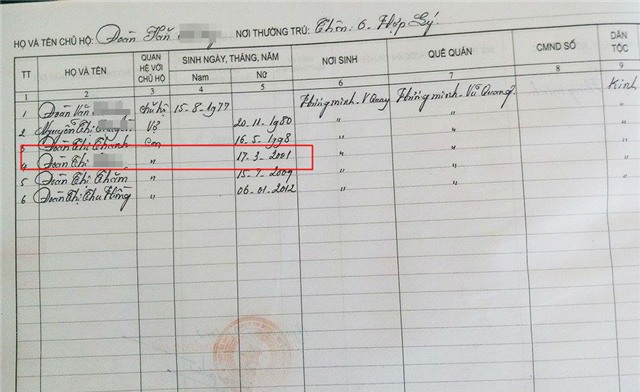 HỌ VÀ TÊN CHỦ HỘ: Đoàn Văn NƠI THƯỜNG TRÚ: Thôn 6. Hợp Lý.
TT HỌ VÀ TÊN QUAN HỆ VỚI CHỦ HỘ SINH NGÀY, THÁNG, NĂM NƠI SINH QUÊ QUÁN CMND SỐ DÂN TỘC
Nam Nữ
1 2 3 4 5 6 7 8 9
1 Đoàn Văn Chủ hộ 15-8-1977 Hùng minh-V Quang Hùng minh-Vũ Quang Kinh
2 Nguyễn Thị Vợ 20-11-1980 " "
3 Đoàn Thị Thanh Con 16-5-1998 " "
4 Đoàn Thị " 17-3-2001 " "
5 Đoàn Thị Thắm " 2009 " "
6 Đoàn Thị Thu Hồng " 06-01-2012 " "